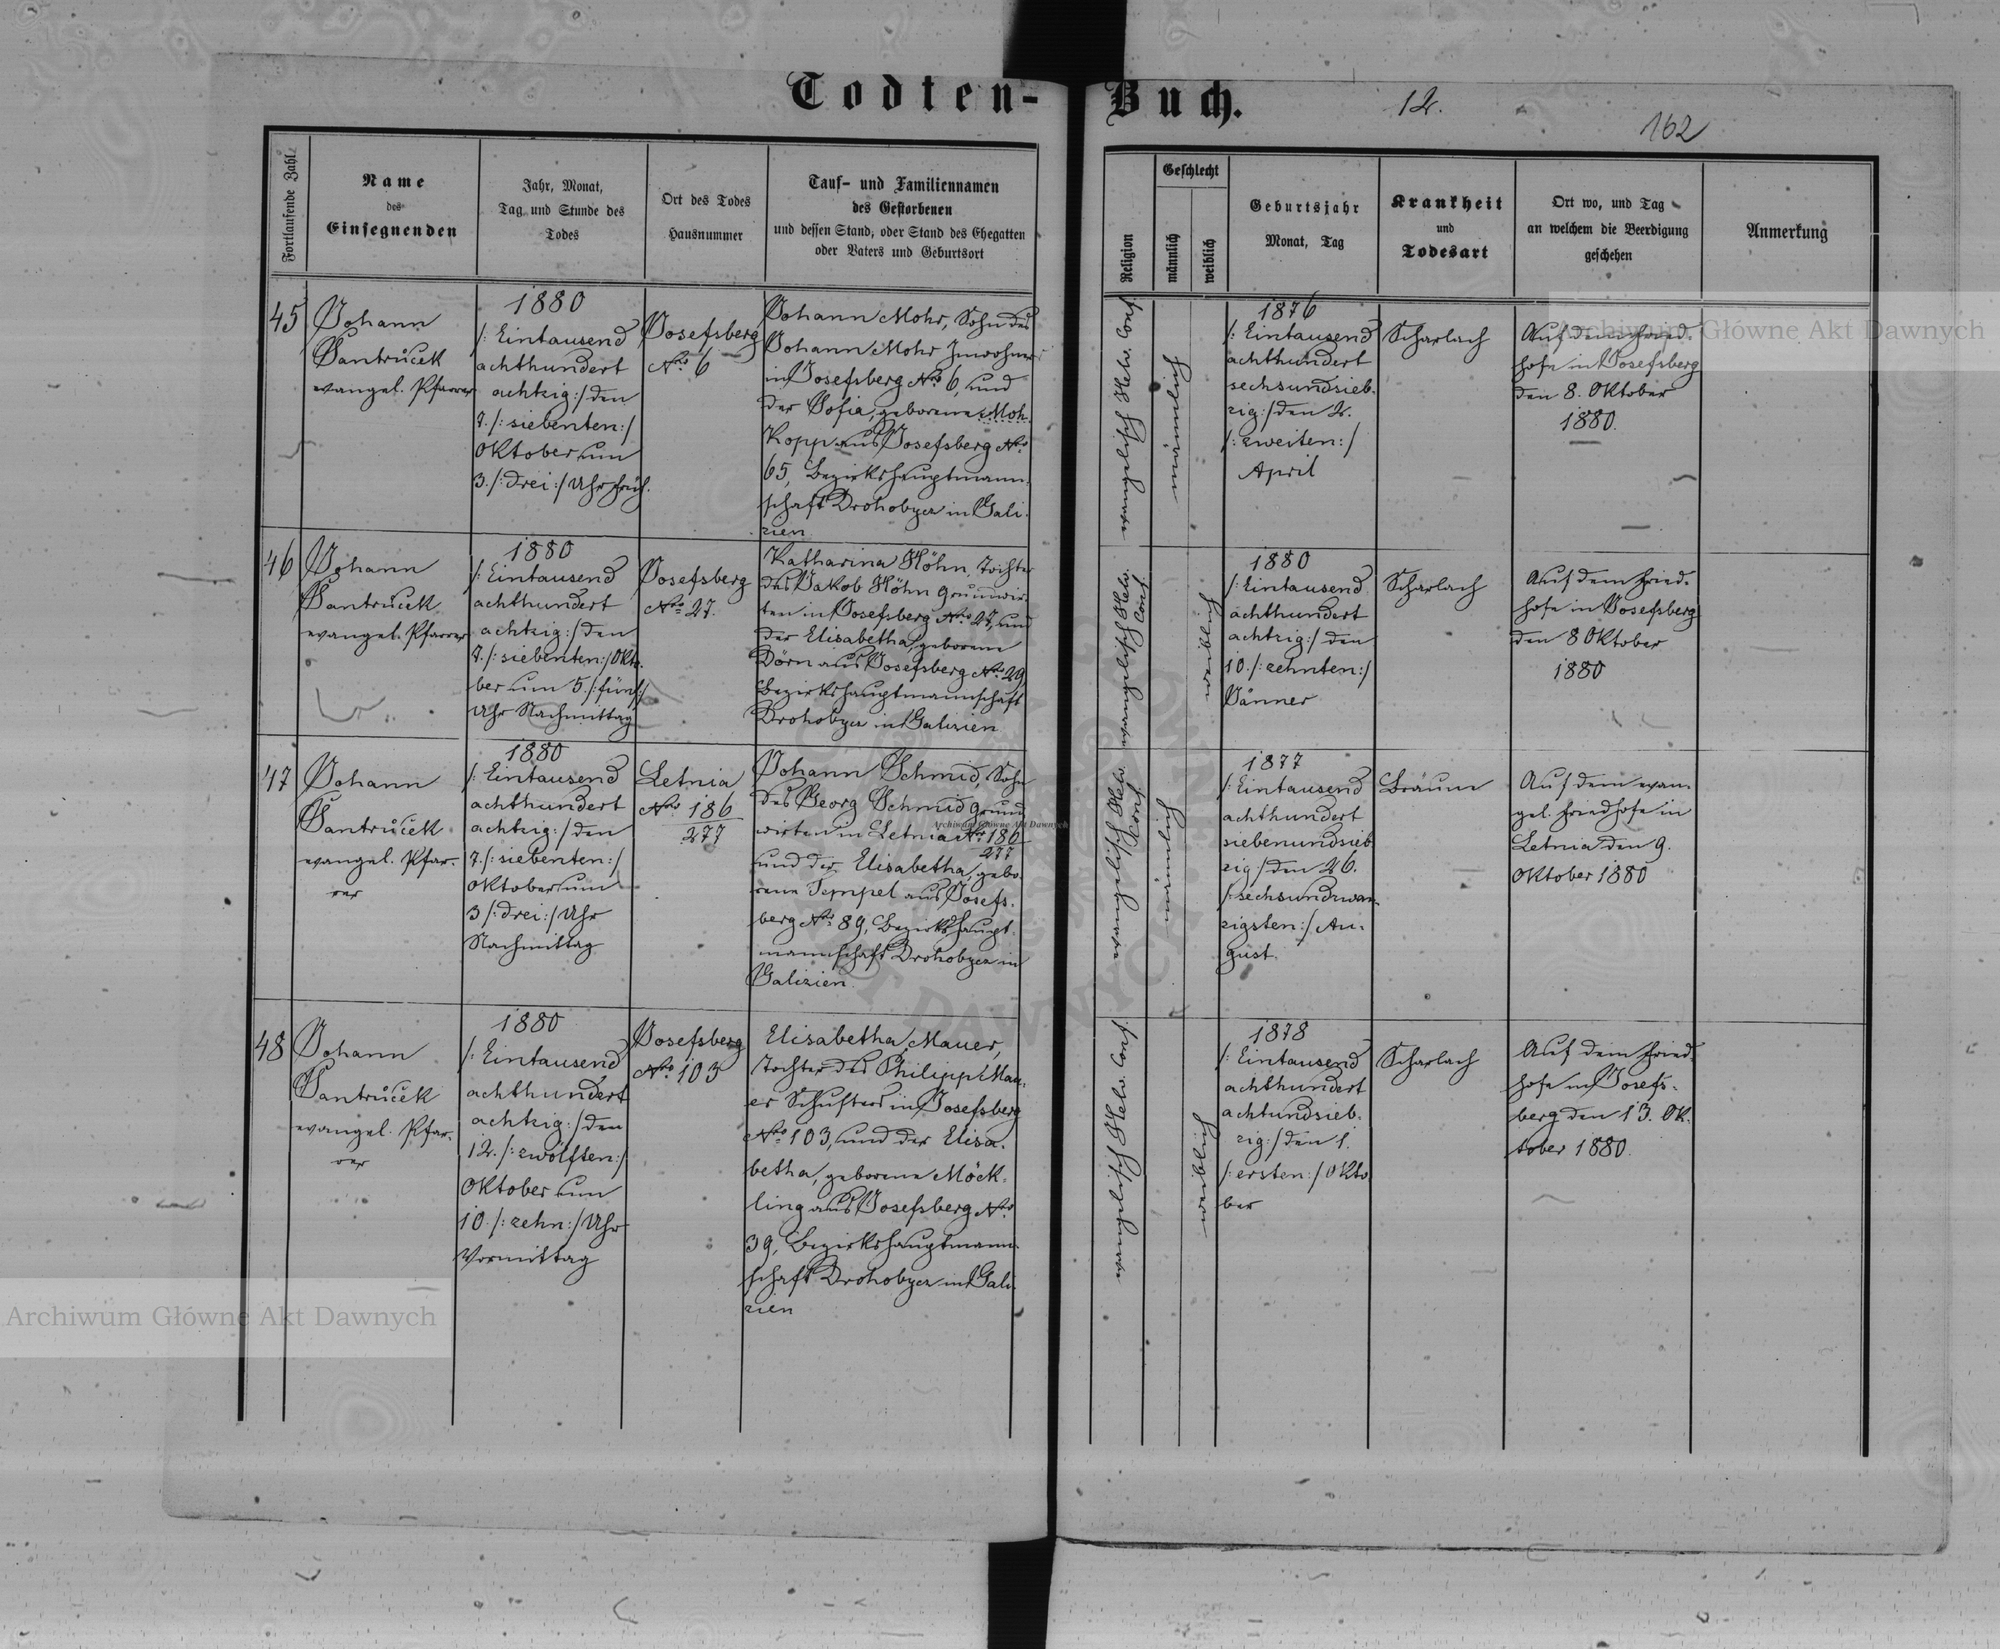 Todten-Buch.
12.
162
Fortlaufende Zahl
Name
des
Einsegnenden
Jahr, Monat,
Tag und Stunde des
Todes
Ort des Todes
Hausnummer
Tauf- und Familiennamen
des Gestorbenen
und dessen Stand, oder Stand des Ehegatten
oder Vaters und Geburtsort
Religion
Geschlecht
männlich
weiblich
Geburtsjahr
Monat, Tag
Krankheit
und
Todesart
Ort wo, und Tag
an welchem die Beerdigung
geschehen
Anmerkung
45
Johann
Jantrůcek
evangel. Pfarrer
1880
/: Eintausend
achthundert
achtzig :/ den
7. /: siebenten :/
Oktober um
3. /: drei :/ Uhr früh.
Josefsberg
No. 6
Johann Mohr, Sohn des
Johann Mohr Inwohners
in Josefsberg No. 6, und
der Sofia, geborene Moh
Kopp aus Josefsberg No.
65, Bezirkshauptmann-
schaft Drohobycz in Gali-
zien
evangelisch Helv. Conf.
männlich
1876
/: Eintausend
achthundert
sechsundsieb-
zig :/ den 2.
/: zweiten :/
April
Scharlach
Auf dem Fried-
hofe in Josefsberg
den 8. Oktober
1880.
46
Johann
Jantrůcek
evangel. Pfarrer
1880
/: Eintausend
achthundert
achtzig :/ den
7. /: siebenten :/ Okto-
ber um 5. /: fünf :/
Uhr Nachmittag
Josefsberg
No. 27.
Katharina Höhn, Tochter
des Jakob Höhn Grundwir-
ten in Josefsberg No. 27, und
der Elisabetha, geborene
Dörn aus Josefsberg No. 29
Bezirkshauptmannschaft
Drohobycz in Galizien
evangelisch Helv.
Conf.
weiblich
1880
/: Eintausend
achthundert
achtzig :/ den
10. /: zehnten :/
Jänner
Scharlach
Auf dem Fried-
hofe in Josefsberg
den 8 Oktober
1880
47
Johann
Jantrůcek
evangel. Pfar-
rer
1880
/: Eintausend
achthundert
achtzig :/ den
7. /: siebenten :/
Oktober um
3 /: drei :/ Uhr
Nachmittag
Letnia
No. 186
277
Johann Schmid, Sohn
des Georg Schmid Grund
wirten in Letnia No. 186
277
und der Elisabetha, gebo-
rene Tempel aus Josefs-
berg No. 89, Bezirkshaupt-
mannschaft Drohobycz in
Galizien
evangelisch Helv.
Conf.
männlich
1877
/: Eintausend
achthundert
siebenundsieb
zig :/ den 26.
/: sechsundzwan-
zigsten :/ Au-
gust
Bräune
Auf dem evan-
gel. Friedhofe in
Letnia den 9.
Oktober 1880
48
Johann
Jantrůcek
evangel. Pfar-
rer
1880
/: Eintausend
achthundert
achtzig :/ den
12. /: zwölften :/
Oktober um
10. /: zehn :/ Uhr
Vormittag
Josefsberg
No. 103
Elisabetha Mauer,
Tochter des Philipp Mau-
er Schusters in Josefsberg
No. 103, und der Elisa-
betha, geborene Möck-
ling aus Josefsberg No.
39, Bezirkshauptmann-
schaft Drohobycz in Gali-
zien
evangelisch Helv. Conf.
weiblich
1878
/: Eintausend
achthundert
achtundsieb-
zig :/ den 1.
/: ersten :/ Okto
ber
Scharlach
Auf dem Fried
hofe in Josefs-
berg den 13. Ok-
tober 1880.
Archiwum Główne Akt Dawnych
Archiwum Główne Akt Dawnych
Archiwum Główne Akt Dawnych